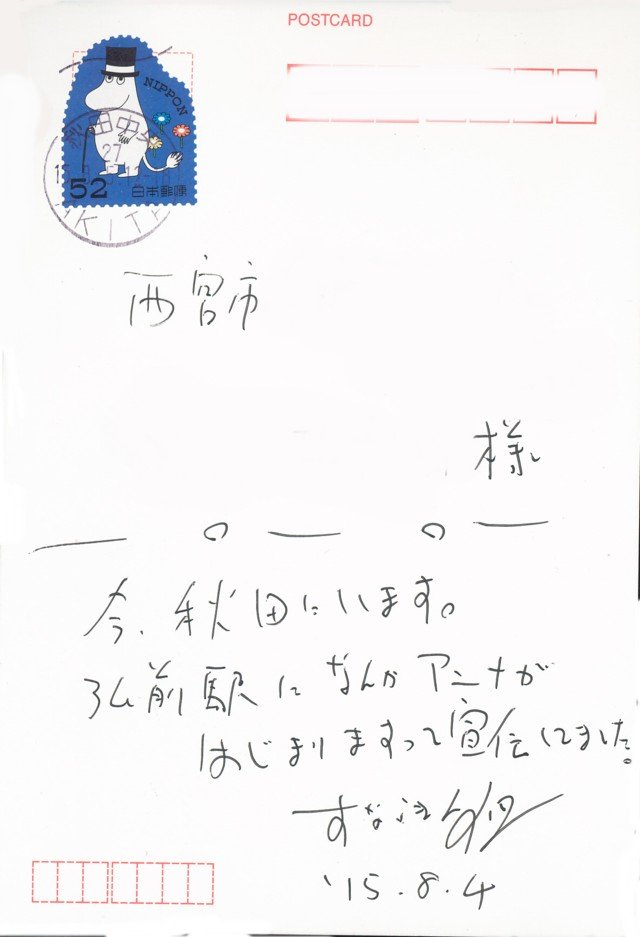 POSTCARD
NIPPON
52 日本郵便
27
西宮市
様
今、秋田にいます。
弘前駅になんかアニメが
はじまりますって宣伝してました。
'15.8.4